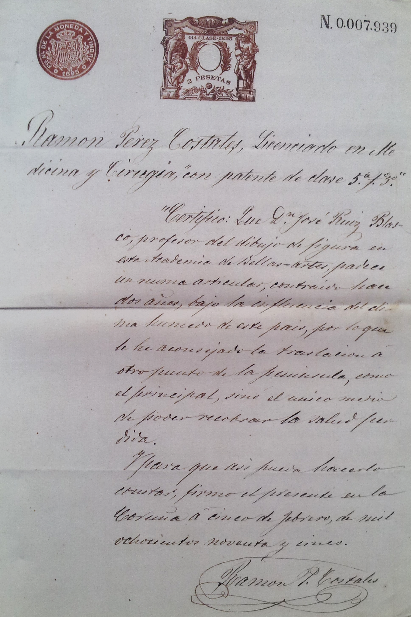 N. 0.007.939
DE LA MONEDA Y TIMBRE
1895
2 PESETAS
Ramon Pérez Costales, Licenciado en Me
dicina y Cirugia, con patente de clase 5.ª
Certifico: Que D.n José Ruiz Blas-
co, profesor del dibujo de figura en
esta Academia de Bellas-artes, padece
un reuma articular, contraido hace
dos años, bajo la influencia del cli
ma humedo de este pais, por lo que
le he aconsejado la traslacion á
otro punto de la peninsula, como
el principal, sino el unico medio
de poder recobrar la salud per
dida.
Y para que asi pueda hacerlo
constar, firmo el presente en la
Coruña á cinco de de mil
ochocientos noventa y cinco.
Ramon P. Costales